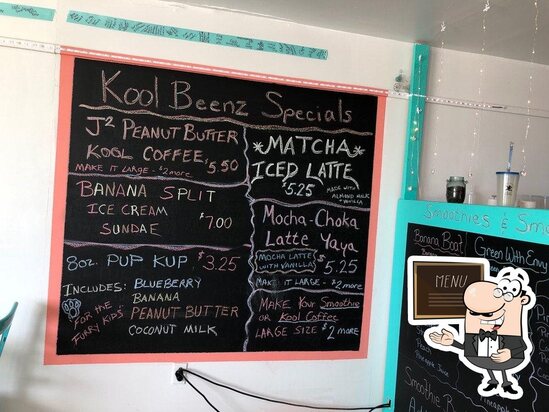 Kool Beenz Specials
J2 PEANUT BUTTER
KOOL COFFEE $5.50
MAKE IT LARGE - $2 more
BANANA SPLIT
ICE CREAM
SUNDAE $7.00
8oz. PUP KUP $3.25
INCLUDES: BLUEBERRY
BANANA
PEANUT BUTTER
COCONUT MILK
"FOR THE
FURRY KIDS"
*MATCHA*
ICED LATTE
$5.25
MADE WITH
ALMOND MILK
+ VANILLA
Mocha-Choka
Latte Yaya
MOCHA LATTE
WITH VANILLA $5.25
MAKE IT LARGE - $2 more
MAKE YOUR Smoothie
OR Kool Coffee
LARGE SIZE $2 more
Smoothies
Banana Boat
Green With Envy
MENU
Peach
Pineapple Juice
Smoothie